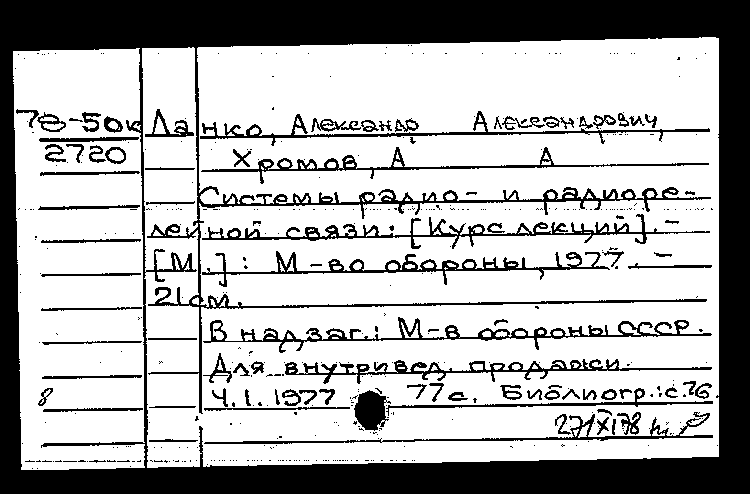 78-50к Ланко, Александр Александрович,
2720 Хромов, А А
Системы радио- и радиоре-
лейной связи: [Курс лекций]. -
[М.]: М-во обороны, 1977. -
21 см.
В надзаг.: М-в обороны СССР.
Для внутривед. продажи.
8 Ч.1. 1977 77 с. Библиогр.: с.76.